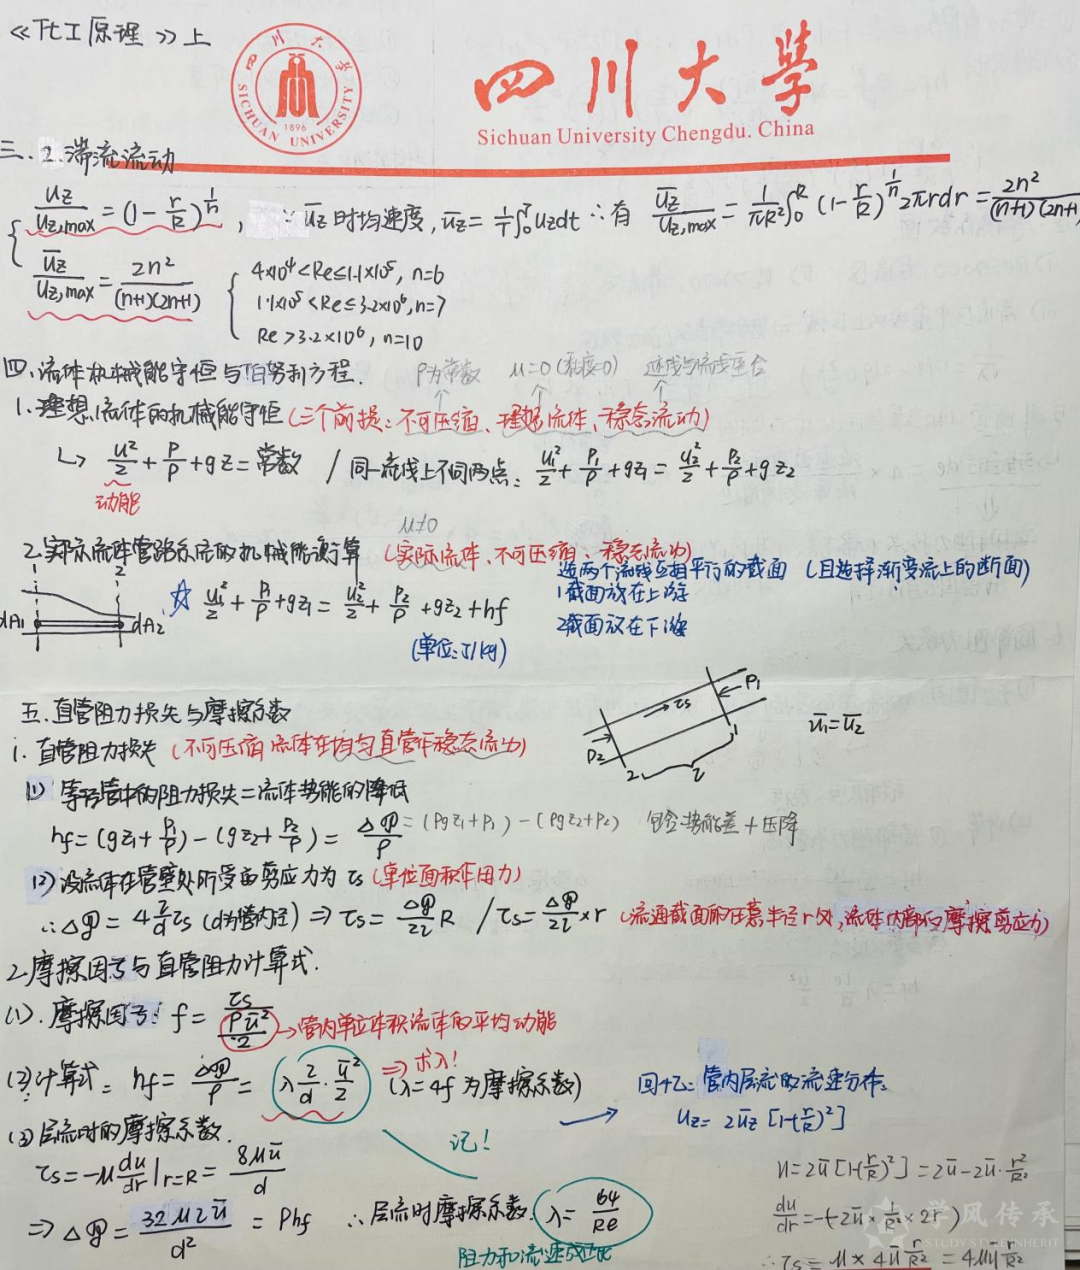 《化工原理》上
四川大学
SICHUAN UNIVERSITY
1896
Sichuan University Chengdu. China
三、2.滞流流动
uz/uz,max = (1 - r/R)^(1/n), ∵ ūz 时均速度, ūz = 1/T ∫₀ᵀ uz dt ∴有 ūz/uz,max = 1/(πR²) ∫₀ᴿ (1 - r/R)^(1/n) 2πrdr = 2n²/((n+1)(2n+1)
ūz/uz,max = 2n²/((n+1)(2n+1))
4×10⁴<Re≤1.1×10⁵, n=6
1.1×10⁵<Re≤3.2×10⁶, n=7
Re>3.2×10⁶, n=10
四、流体机械能守恒与伯努利方程.
ρ为常数 μ=0(粘度=0) 迹线与流线重合
1.理想流体的机械能守恒(三个前提:不可压缩、理想流体、稳态流动)
↳ u²/2 + P/ρ + gz = 常数 / 同一流线上不同两点: u₁²/2 + P₁/ρ + gz₁ = u₂²/2 + P₂/ρ + gz₂
动能
μ≠0
2.实际流体管路系统的机械能衡算 (实际流体、不可压缩、稳态流动)
选两个流线互相平行的截面 (且选择渐变流上的断面)
1截面放在上游
2截面放在下游
1 2
dA₁ dA₂
☆ u₁²/2 + P₁/ρ + gz₁ = u₂²/2 + P₂/ρ + gz₂ + hf
(单位:J/kg)
五.直管阻力损失与摩擦系数
P₁ τs P₂ 2 l 1
ū₁=ū₂
1.直管阻力损失(不可压缩流体在均匀直管作稳态流动)
(1)等径管中的阻力损失=流体势能的降低
hf = (gz₁ + P₁/ρ) - (gz₂ + P₂/ρ) = Δ𝒫/ρ = (ρgz₁+P₁) - (ρgz₂+P₂) 包含势能差+压降
(2)设流体在管壁处所受的剪应力为τs(单位面积作用力)
∴Δ𝒫 = 4 l/d τs (d为管内径) ⇒ τs = Δ𝒫/2l R / τs = Δ𝒫/2l ×r (流通截面的任意半径r处,流体内部的摩擦剪应力)
2.摩擦因子与直管阻力计算式.
(1).摩擦因子: f = τs/(ρū²/2) →管内单位体积流体的平均动能
(2)计算式: hf = Δ𝒫/ρ = λ l/d · ū²/2 ⇒求λ! (λ=4f 为摩擦系数)
回忆:管内层流的流速分布:
uz = 2ūz [1-(r/R)²]
(3)层流时的摩擦系数.
记!
τs = -μ du/dr |r=R = 8μū/d
u = 2ū[1-(r/R)²] = 2ū-2ū·r²/R²
du/dr = -(2ū × 1/R² × 2r)
⇒ Δ𝒫 = 32μlū/d² = ρhf ∴层流时摩擦系数. λ = 64/Re
∴τs = μ×4ū r/R² = 4μū r/R²
阻力和流速成正比
学风传承
STUDY STYLE INHERIT